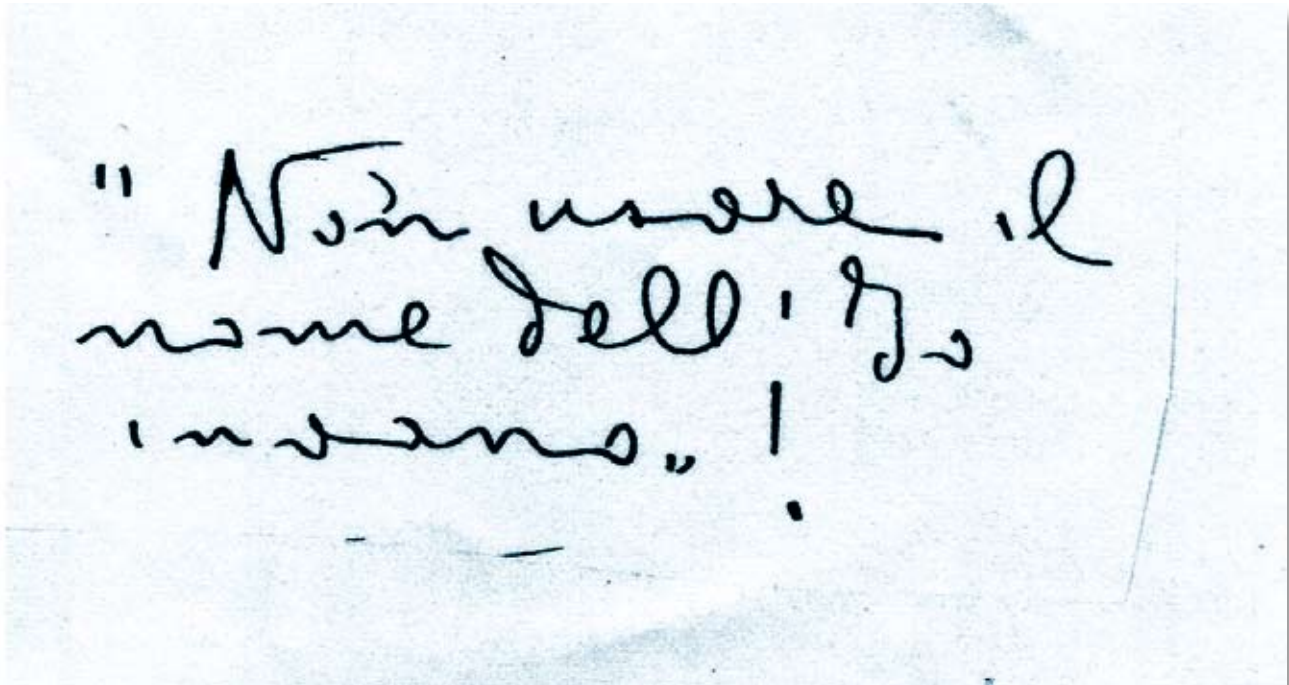 " Non usare il
nome dell' Io
invano „ !